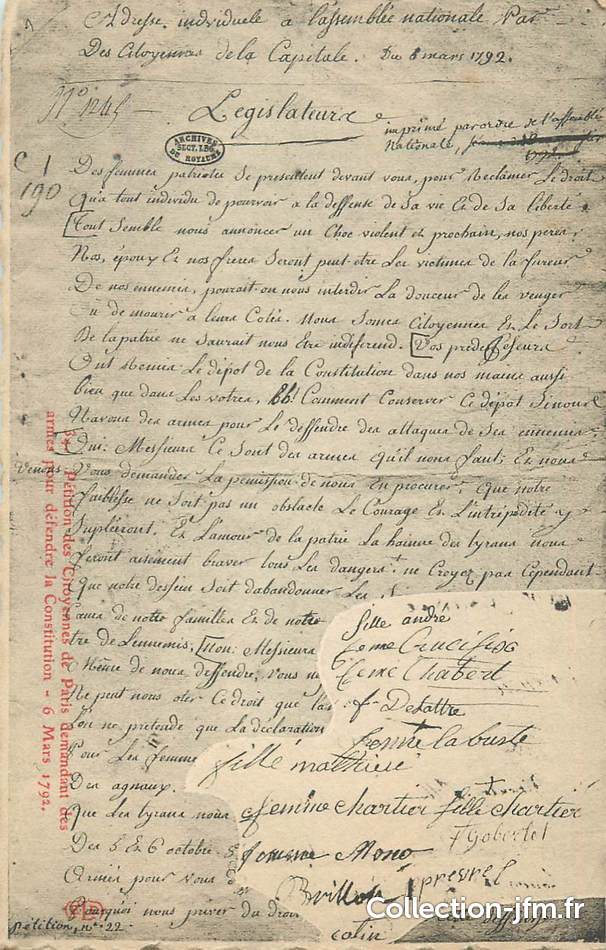 Adresse individuele à l'assemblée nationale Par
Des Citoyennes de la Capitale. Du 6 mars 1792.
N° 1245
Legislateurs
imprimé par ordre de l'assemblée
nationale,
ARCHIVES
SECT. LEG.
DU ROYAUME
C I
190
Des femmes patriotes se presentent devant vous, pour Reclamer Le droit
Qu'a tout individu de pourvoir a la deffense de sa vie Et de Sa liberté
Tout Semble nous annoncer un Choc violent et prochain, nos peres,
Nos, époux Et nos freres Seront peut-etre Les victimes de la fureur
De nos ennemis, pourait on nous interdir La douceur de les venger
Ou de mourir a leurs Cotés. Nous Somes Citoyennes Et Le Sort
De la patrie ne Saurait nous Etre indiferend. Vos predecesseurs
Ont Remis Le dépot de la Constitution dans nos mains aussi
bien que dans Les votres, Eh! Comment Conserver Ce dépot Si nous
N'avons des armes pour Le deffendre des attaques de Ses ennemis.
Oui: Messieurs Ce Sont des armes qu'il nous faut; Et nous
venons Vous demander La permission de nous En procurer. Que notre
faiblesse ne Soit pas un obstacle Le Courage Et L'intrépidité y
Supléront. Et L'amour de la patrie La hainne des tyrans nous
feront aisement braver tous Les dangers. ne Croyez pas Cependant
Que notre dessein Soit d'abandonner Les
de notre familles Et de notre
tre de L'ennemis, Non: Messieurs
même de nous deffendre, vous n
Ne peut nous oter Ce droit que la
L'on ne pretende que La déclaration
Pour Les femmes
Des agnaux.
Que des tyrans nous
Des 5 Et 6 octobre
Armés pour vous
Pourquoi nous priver du droit
fille andré
feme Crucifix
feme Chabert
f. Delattre
femme labuste
fille mathieu
femme Chartier fille Chartier
f Gobertet
femme Mono
Brillon
prevel
Colin
53. — Pétition des Citoyennes de Paris demandant des
armes pour défendre la Constitution - 6 Mars 1792.
pétition, n°. 22.
Collection-jfm.fr